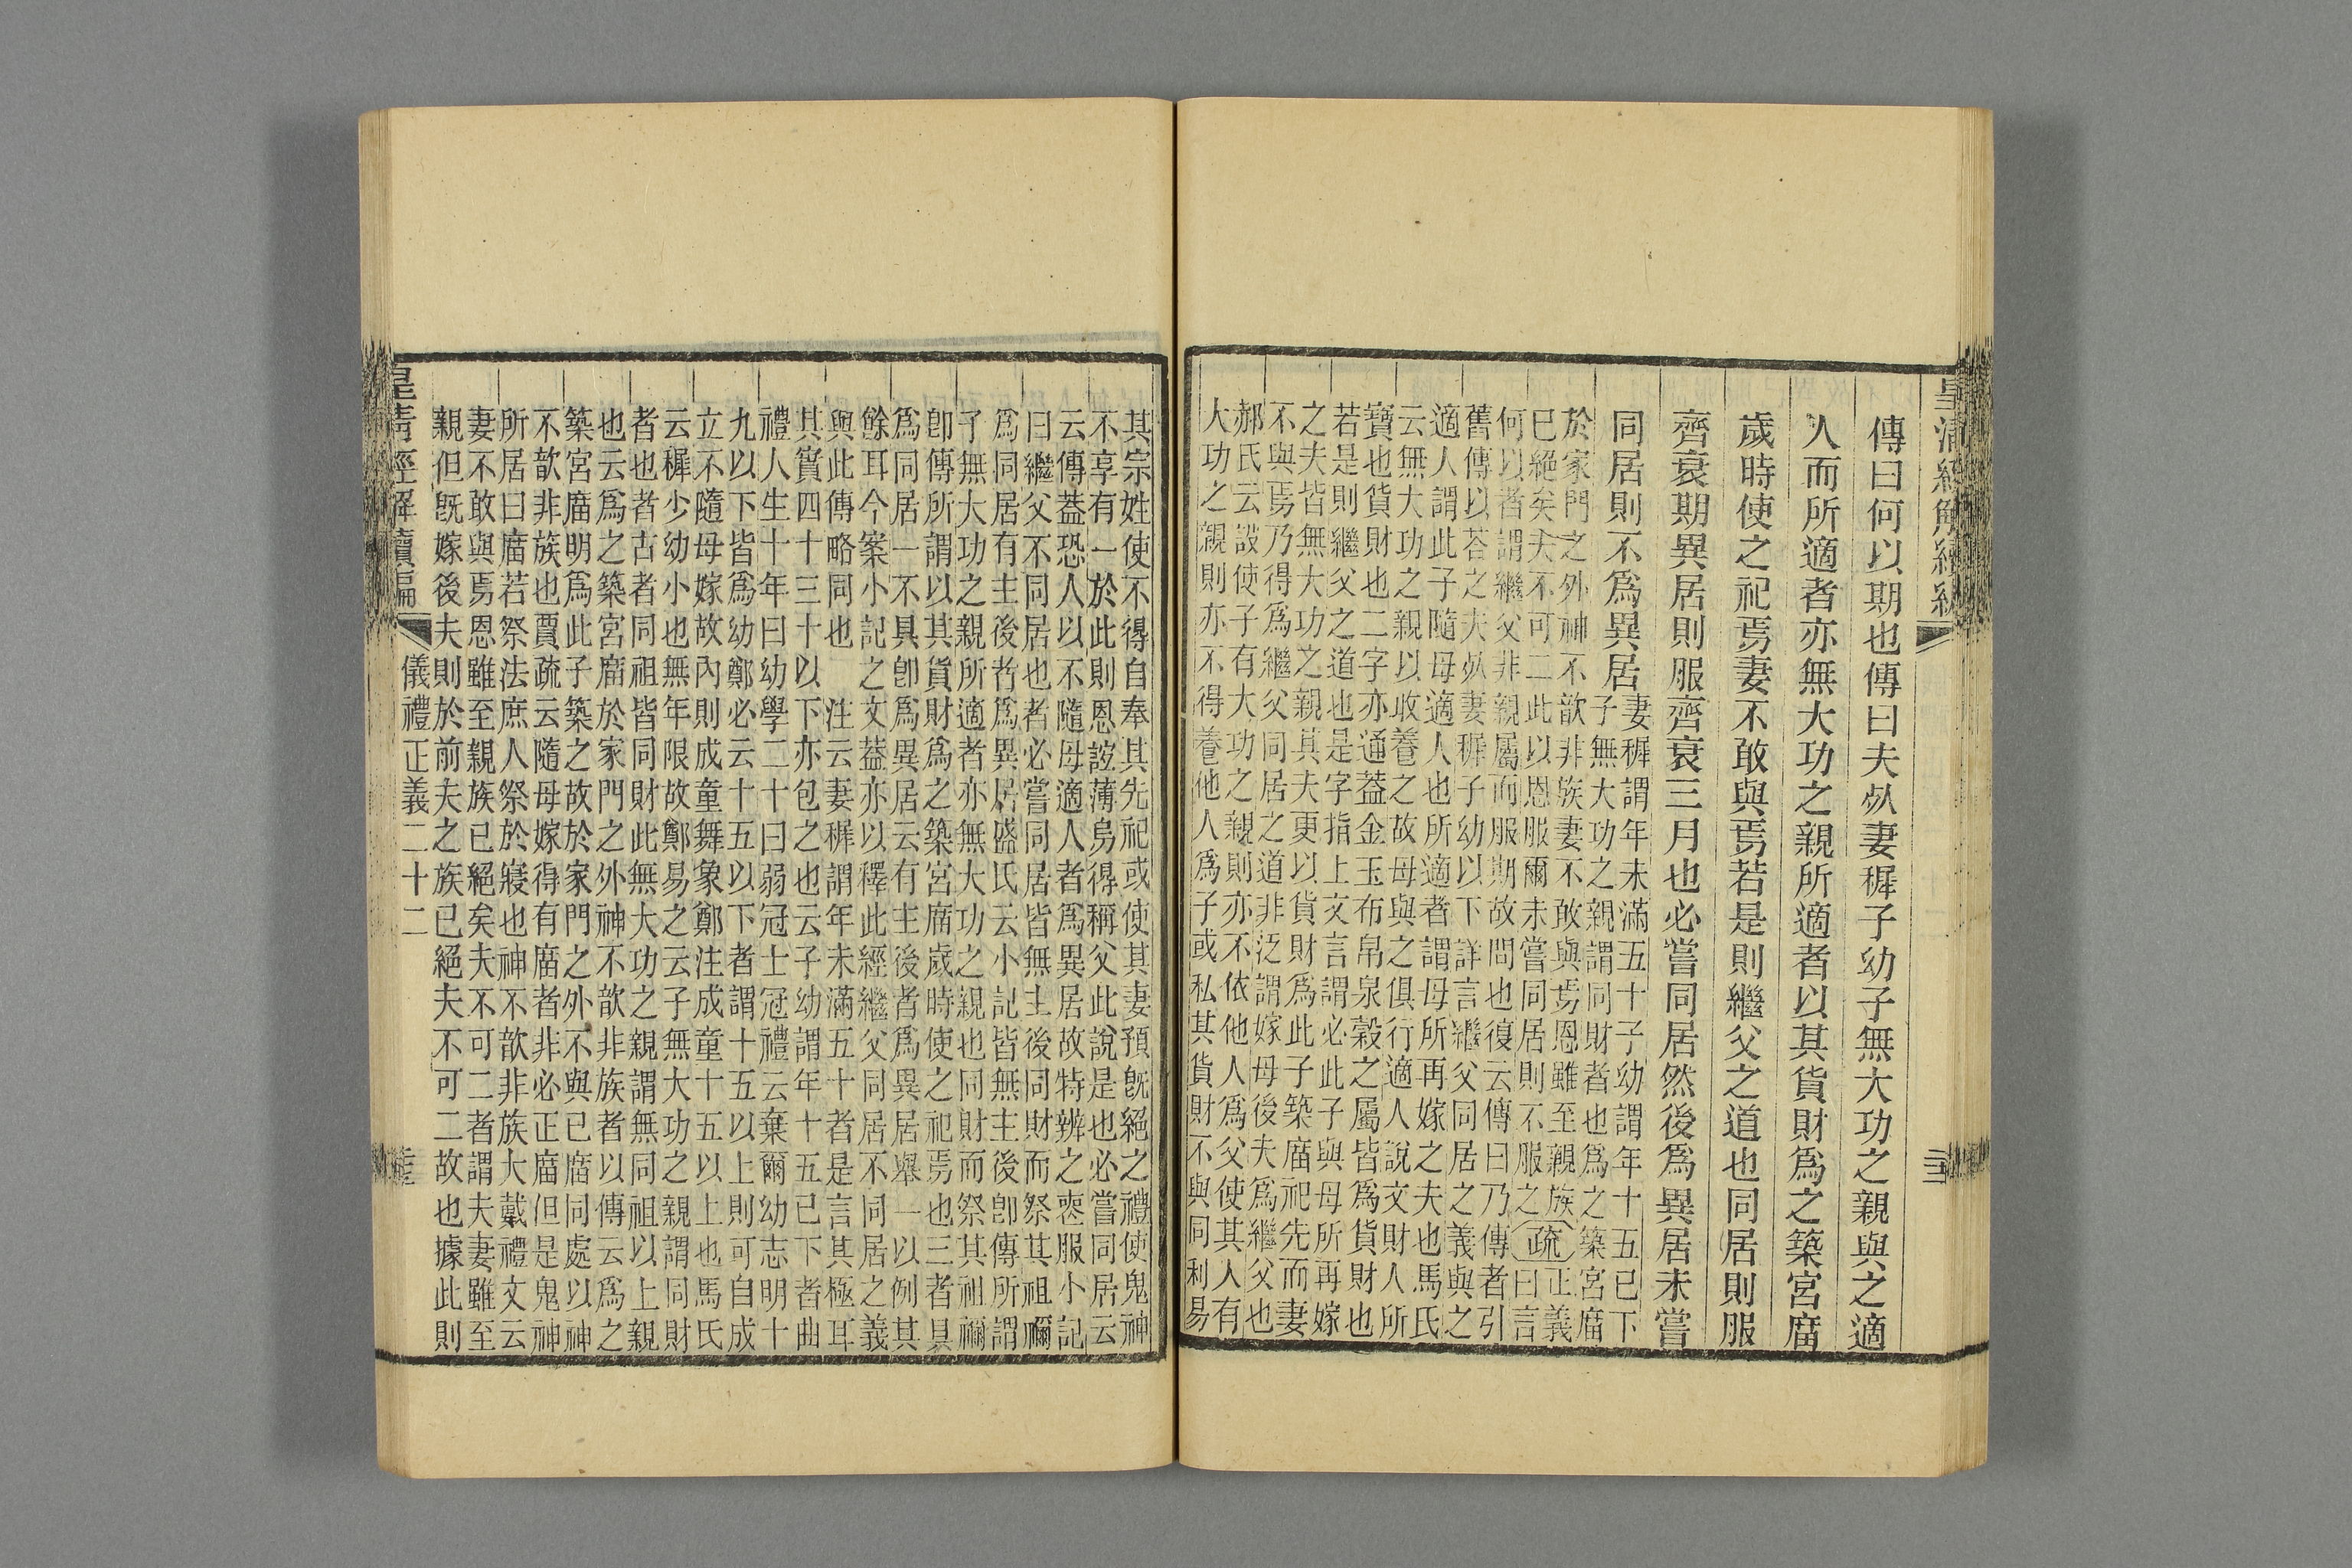 皇清經解續編
傳曰何以期也傳曰夫歾妻穉子幼子無大功之親與之適
人而所適者亦無大功之親所適者以其貨財爲之築宮廟
歲時使之祀焉妻不敢與焉若是則繼父之道也同居則服
齊衰期異居則服齊衰三月也必嘗同居然後爲異居未嘗
同居則不爲異居
妻穉謂年未滿五十子幼謂年十五已下
子無大功之親謂同財者也爲之築宮廟
於家門之外神不歆非族妻不敢與焉恩雖至親族
已絕矣夫不可二此以恩服爾未嘗同居則不服之
疏
正義
曰言
何以者謂繼父非親屬而服期故問也復云傳曰乃傳者引
舊傳以荅之夫歾妻穉子幼以下詳言繼父同居之義與之
適人謂此子隨母適人也所適者謂母所再嫁之夫也馬氏
云無大功之親以收養之故母與之俱行適人說文財人所
寶也貨財也二字亦通蓋金玉布帛泉穀之屬皆爲貨財也
若是則繼父之道也是字指上文言謂必此子與母所再嫁
之夫皆無大功之親其夫更以貨財爲此子築廟祀先而妻
不與焉乃得爲繼父同居之道非泛謂嫁母後夫爲繼父也
郝氏云設使子有大功之親則亦不依他人爲父使其人有
大功之親則亦不得養他人爲子或私其貨財不與同利易
其宗姓使不得自奉其先祀或使其妻預旣絕之禮使鬼神
不享有一於此則恩誼薄烏得稱父此說是也必嘗同居云
云傳蓋恐人以不隨母適人者爲異居故特辨之喪服小記
曰繼父不同居也者必嘗同居皆無主後同財而祭其祖禰
爲同居有主後者爲異居盛氏云小記皆無主後卽傳所謂
子無大功之親所適者亦無大功之親也同財而祭其祖禰
卽傳所謂以其貨財爲之築宮廟歲時使之祀焉也三者具
爲同居一不具卽爲異居云有主後者爲異居舉一以例其
餘耳今案小記之文蓋亦以釋此經繼父同居不同居之義
與此傳略同也　注云妻穉謂年未滿五十者是言其極耳
其實四十三十以下亦包之也云子幼謂年十五已下者曲
禮人生十年曰幼學二十曰弱冠士冠禮云棄爾幼志明十
九以下皆爲幼鄭必云十五以下者謂十五以上則可自成
立不隨母嫁故內則成童舞象鄭注成童十五以上也馬氏
云穉少幼小也無年限故鄭易之云子無大功之親謂同財
者也者古者同祖皆同財此無大功之親謂無同祖以上親
也云爲之築宮廟於家門之外神不歆非族者以傳云爲之
築宮廟明爲此子築之故於家門之外不與已廟同處以神
不歆非族也賈疏云隨母嫁得有廟者非必正廟但是鬼神
所居曰廟若祭法庶人祭於寢也神不歆非族大戴禮文云
妻不敢與焉恩雖至親族已絕矣夫不可二者謂夫妻雖至
親但旣嫁後夫則於前夫之族已絕夫不可二故也據此則
皇清經解續編
儀禮正義二十二